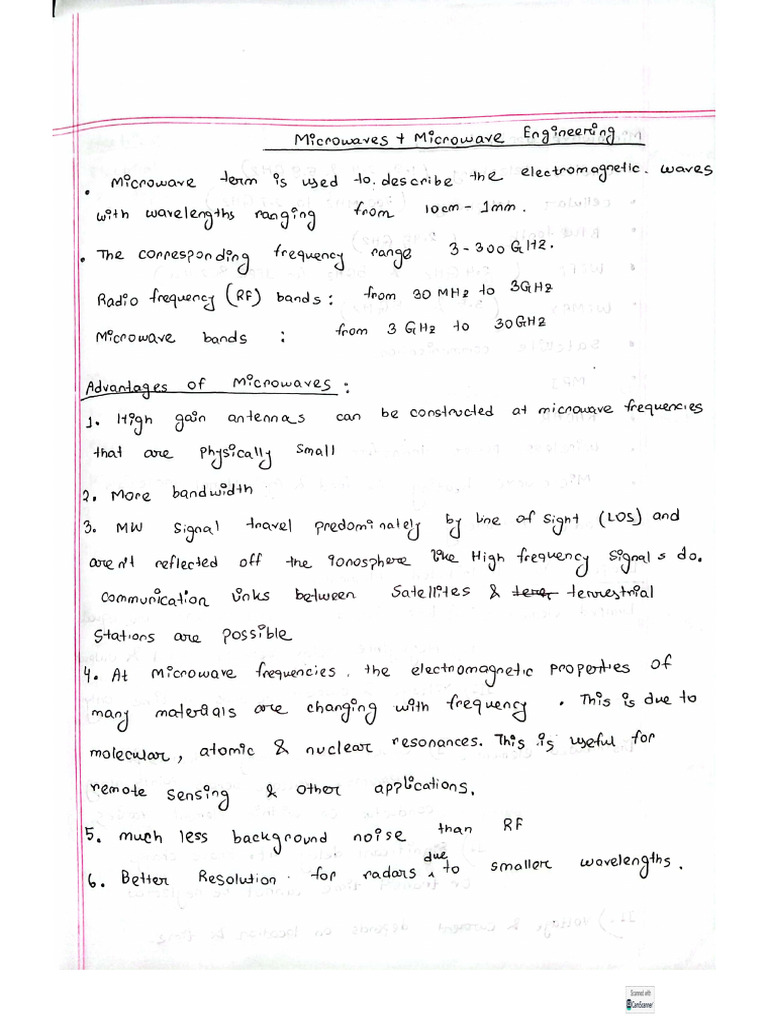 Microwaves + Microwave Engineering
• Microwave term is used to describe the electromagnetic. waves
with wavelengths ranging from 10cm - 1mm.
• The corresponding frequency range 3-300GHz.
Radio frequency (RF) bands : from 30 MHz to 3GHz
Microwave bands : from 3 GHz to 30GHz
Advantages of Microwaves :
1. High gain antennas can be constructed at microwave frequencies
that are physically small
2. More bandwidth
3. MW Signal travel predominately by line of sight (LOS) and
aren't reflected off the ionosphere like High frequency signals do.
communication links between Satellites & terrestrial
stations are possible
4. At Microwave frequencies, the electromagnetic properties of
many materials are changing with frequency. This is due to
molecular, atomic & nuclear resonances. This is useful for
remote sensing & other applications.
5. much less background noise than RF
6. Better Resolution for radars due to smaller wavelengths.
Scanned with
CamScanner